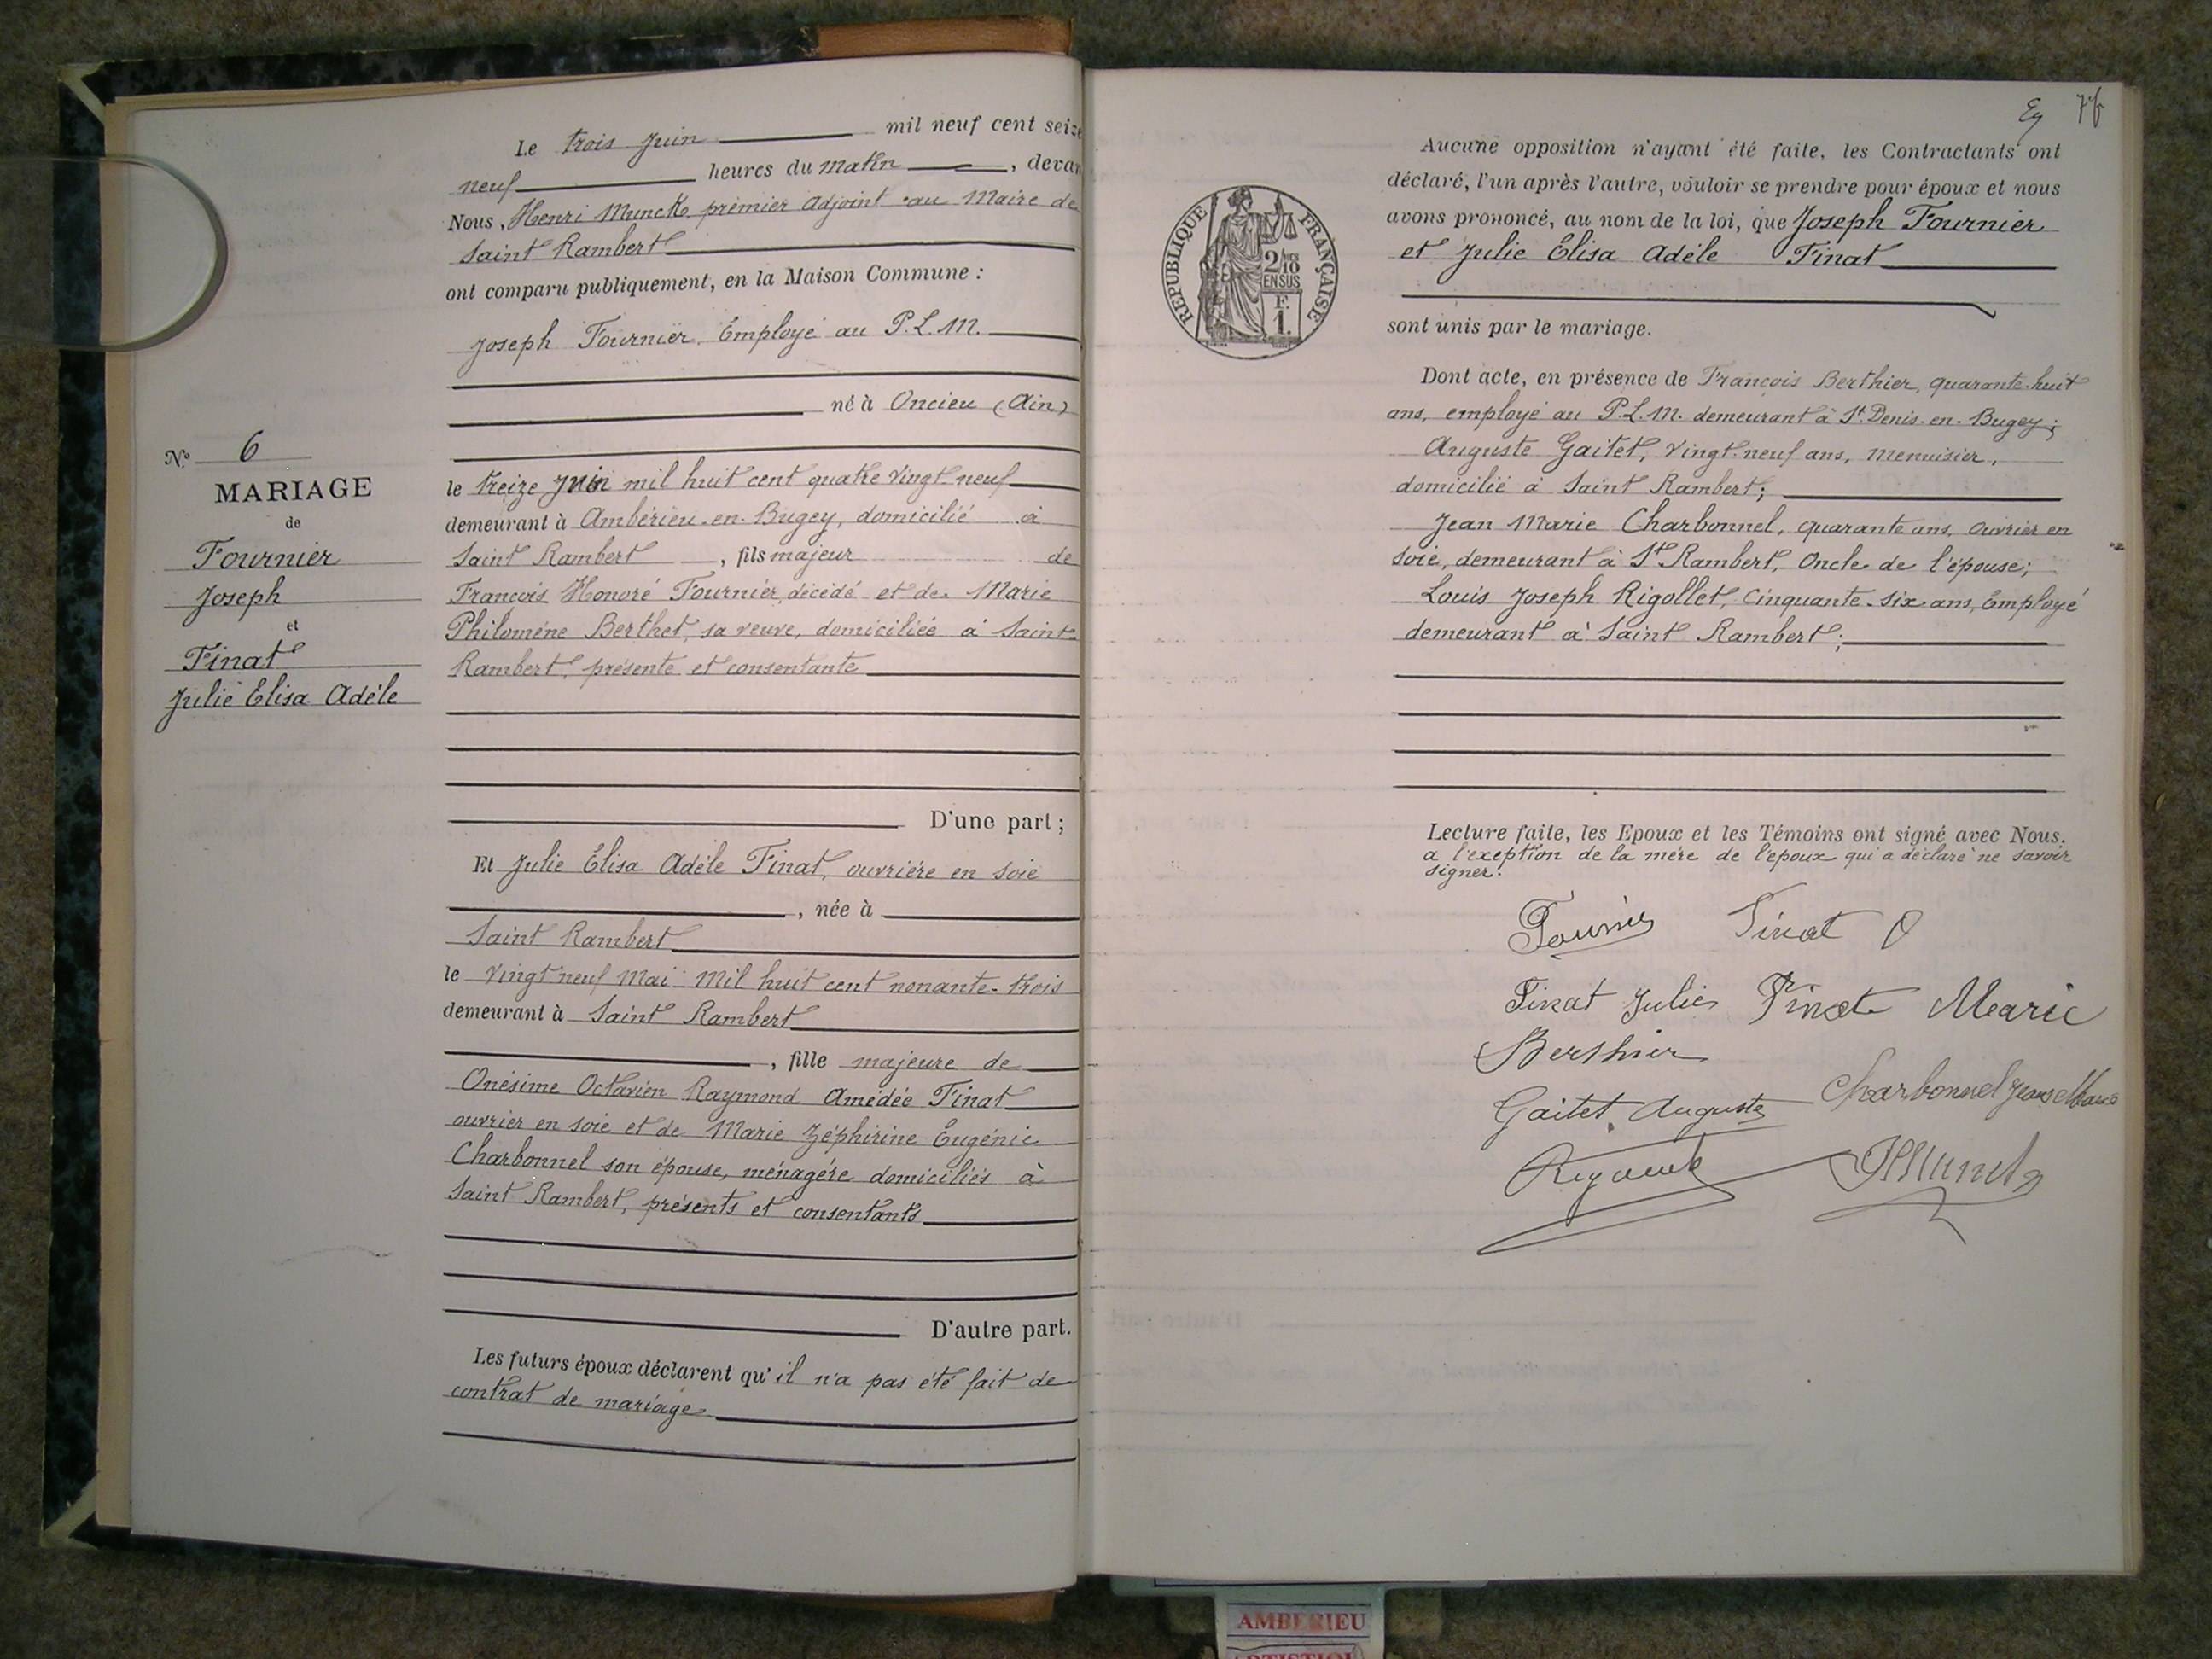 Le trois Juin mil neuf cent seize
neuf heures du matin, devan
Nous, Henri Munck premier adjoint au Maire de
Saint Rambert
ont comparu publiquement, en la Maison Commune :
Joseph Fournier. Employé au P.L.M.
né à Oncieu (Ain)
le treize juin mil huit cent quatre vingt neuf
demeurant à Ambérieu-en-Bugey, domicilié à
Saint Rambert, fils majeur de
François Honoré Fournier, décédé et de Marie
Philomène Berthet, sa veuve, domiciliée à Saint-
Rambert, présente et consentante
D'une part ;
Et Julie Elisa Adèle Finat, ouvrière en soie
, née à
Saint Rambert
le vingt neuf Mai Mil huit cent nonante-trois
demeurant à Saint Rambert
, fille majeure de
Onésime Octavien Raymond Amédée Finat
ouvrier en soie et de Marie Zéphirine Eugénie
Charbonnel son épouse, ménagère domiciliés à
Saint Rambert, présents et consentants
D'autre part.
Les futurs époux déclarent qu'il n'a pas été fait de
contrat de mariage
N° 6
MARIAGE
de
Fournier
Joseph
et
Finat
Julie Elisa Adèle
RÉPUBLIQUE FRANÇAISE
2/10
EN SUS
F.
1.
Aucune opposition n'ayant été faite, les Contractants ont
déclaré, l'un après l'autre, vouloir se prendre pour époux et nous
avons prononcé, au nom de la loi, que Joseph Fournier
et Julie Elisa Adèle Finat
sont unis par le mariage.
Dont acte, en présence de François Berthier, quarante-huit
ans, employé au P.L.M. demeurant à St Denis-en-Bugey ;
Auguste Gaitet, vingt-neuf ans, menuisier,
domicilié à Saint Rambert ;
Jean Marie Charbonnel, quarante ans, ouvrier en
soie, demeurant à St Rambert, Oncle de l'épouse ;
Louis Joseph Rigollet, cinquante-six ans, Employé
demeurant à Saint Rambert ;
Lecture faite, les Epoux et les Témoins ont signé avec Nous.
a l'exeption de la mère de l'époux qui a déclaré ne savoir
signer.
Fournier Finat O
Finat Julie Finat Marie
Berthier
Gaitet Auguste Charbonnel Jean Marie
AMBERIEU